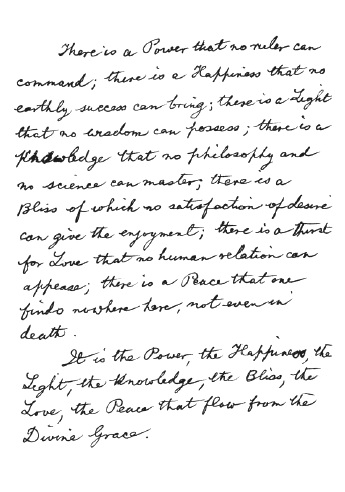 There is a Power that no ruler can
command; there is a Happiness that no
earthly success can bring; there is a Light
that no wisdom can possess; there is a
Knowledge that no philosophy and
no science can master; there is a
Bliss of which no satisfaction of desire
can give the enjoyment; there is a thirst
for Love that no human relation can
appease; there is a Peace that one
finds nowhere here, not even in
death.
It is the Power, the Happiness, the
Light, the Knowledge, the Bliss, the
Love, the Peace that flow from the
Divine Grace.